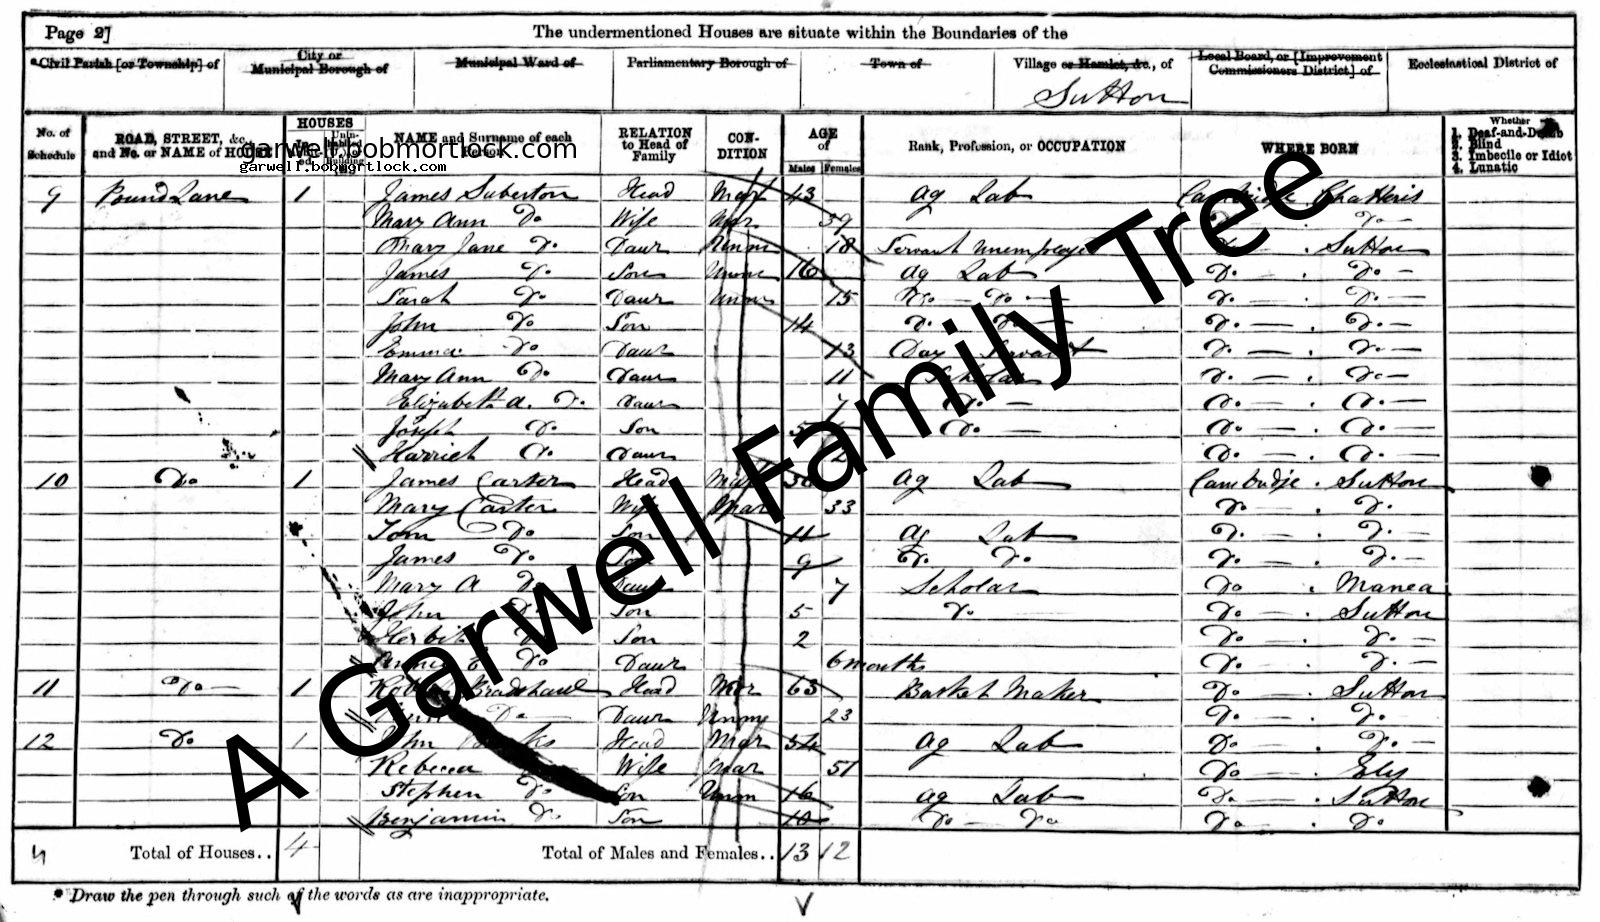 Page 27 The undermentioned Houses are situate within the Boundaries of the
Civil Parish [or Township] of City or Municipal Borough of Municipal Ward of Parliamentary Borough of Town of Village or Hamlet, &c., of Local Board, or [Improvement Commissioners District] of Ecclesiastical District of
Sutton
No. of Schedule ROAD, STREET, &c., and No. or NAME of HOUSE HOUSES NAME and Surname of each Person RELATION to Head of Family CON-DITION AGE of Males Females Rank, Profession, or OCCUPATION WHERE BORN Whether 1. Deaf-and-Dumb 2. Blind 3. Imbecile or Idiot 4. Lunatic
garwell.bobmortlock.com
garwell.bobmortlock.com
9 Pound Lane 1 James Suberton Head Mar 43 Ag Lab Chatteris
Mary Ann Do Wife Mar 39 Do Do
Mary Jane Do Daur Unm 18 Servant unemployed Do Sutton
James Do Son Unm 16 Ag Lab Do Do
Sarah Do Daur Unm 15 Do Do Do Do
John Do Son 14 Do Do Do Do
Emma Do Daur 13 Day Servant Do Do
Mary Ann Do Daur 11 Scholar Do Do
Elizabeth A. Do Daur 7 Do Do Do
Joseph Do Son 5 Do Do Do
Harriet Do Daur Do Do
10 Do 1 James Carter Head Mar Ag Lab Cambridge Sutton
Mary Carter Wife Mar 33 Do Do
Tom Do Son 11 Ag Lab Do Do
James Do Son 9 Do Do Do Do
Mary A Do Daur 7 Scholar Do Manea
John Do Son 5 Do Do Sutton
Do Son 2 Do Do
Do Daur 6 months Do Do
11 Do 1 Bradshaw Head Mar 63 Basket Maker Do Sutton
Do Daur Unm 23 Do Do
12 Do 1 John Head Mar 54 Ag Lab Do Do
Rebecca Wife Mar 51 Do Ely
Stephen Do Son Unm 16 Ag Lab Do Sutton
Benjamin Do Son 10 Do Do Do Do
4 Total of Houses.. 4 Total of Males and Females.. 13 12
* Draw the pen through such of the words as are inappropriate.
A Garwell Family Tree